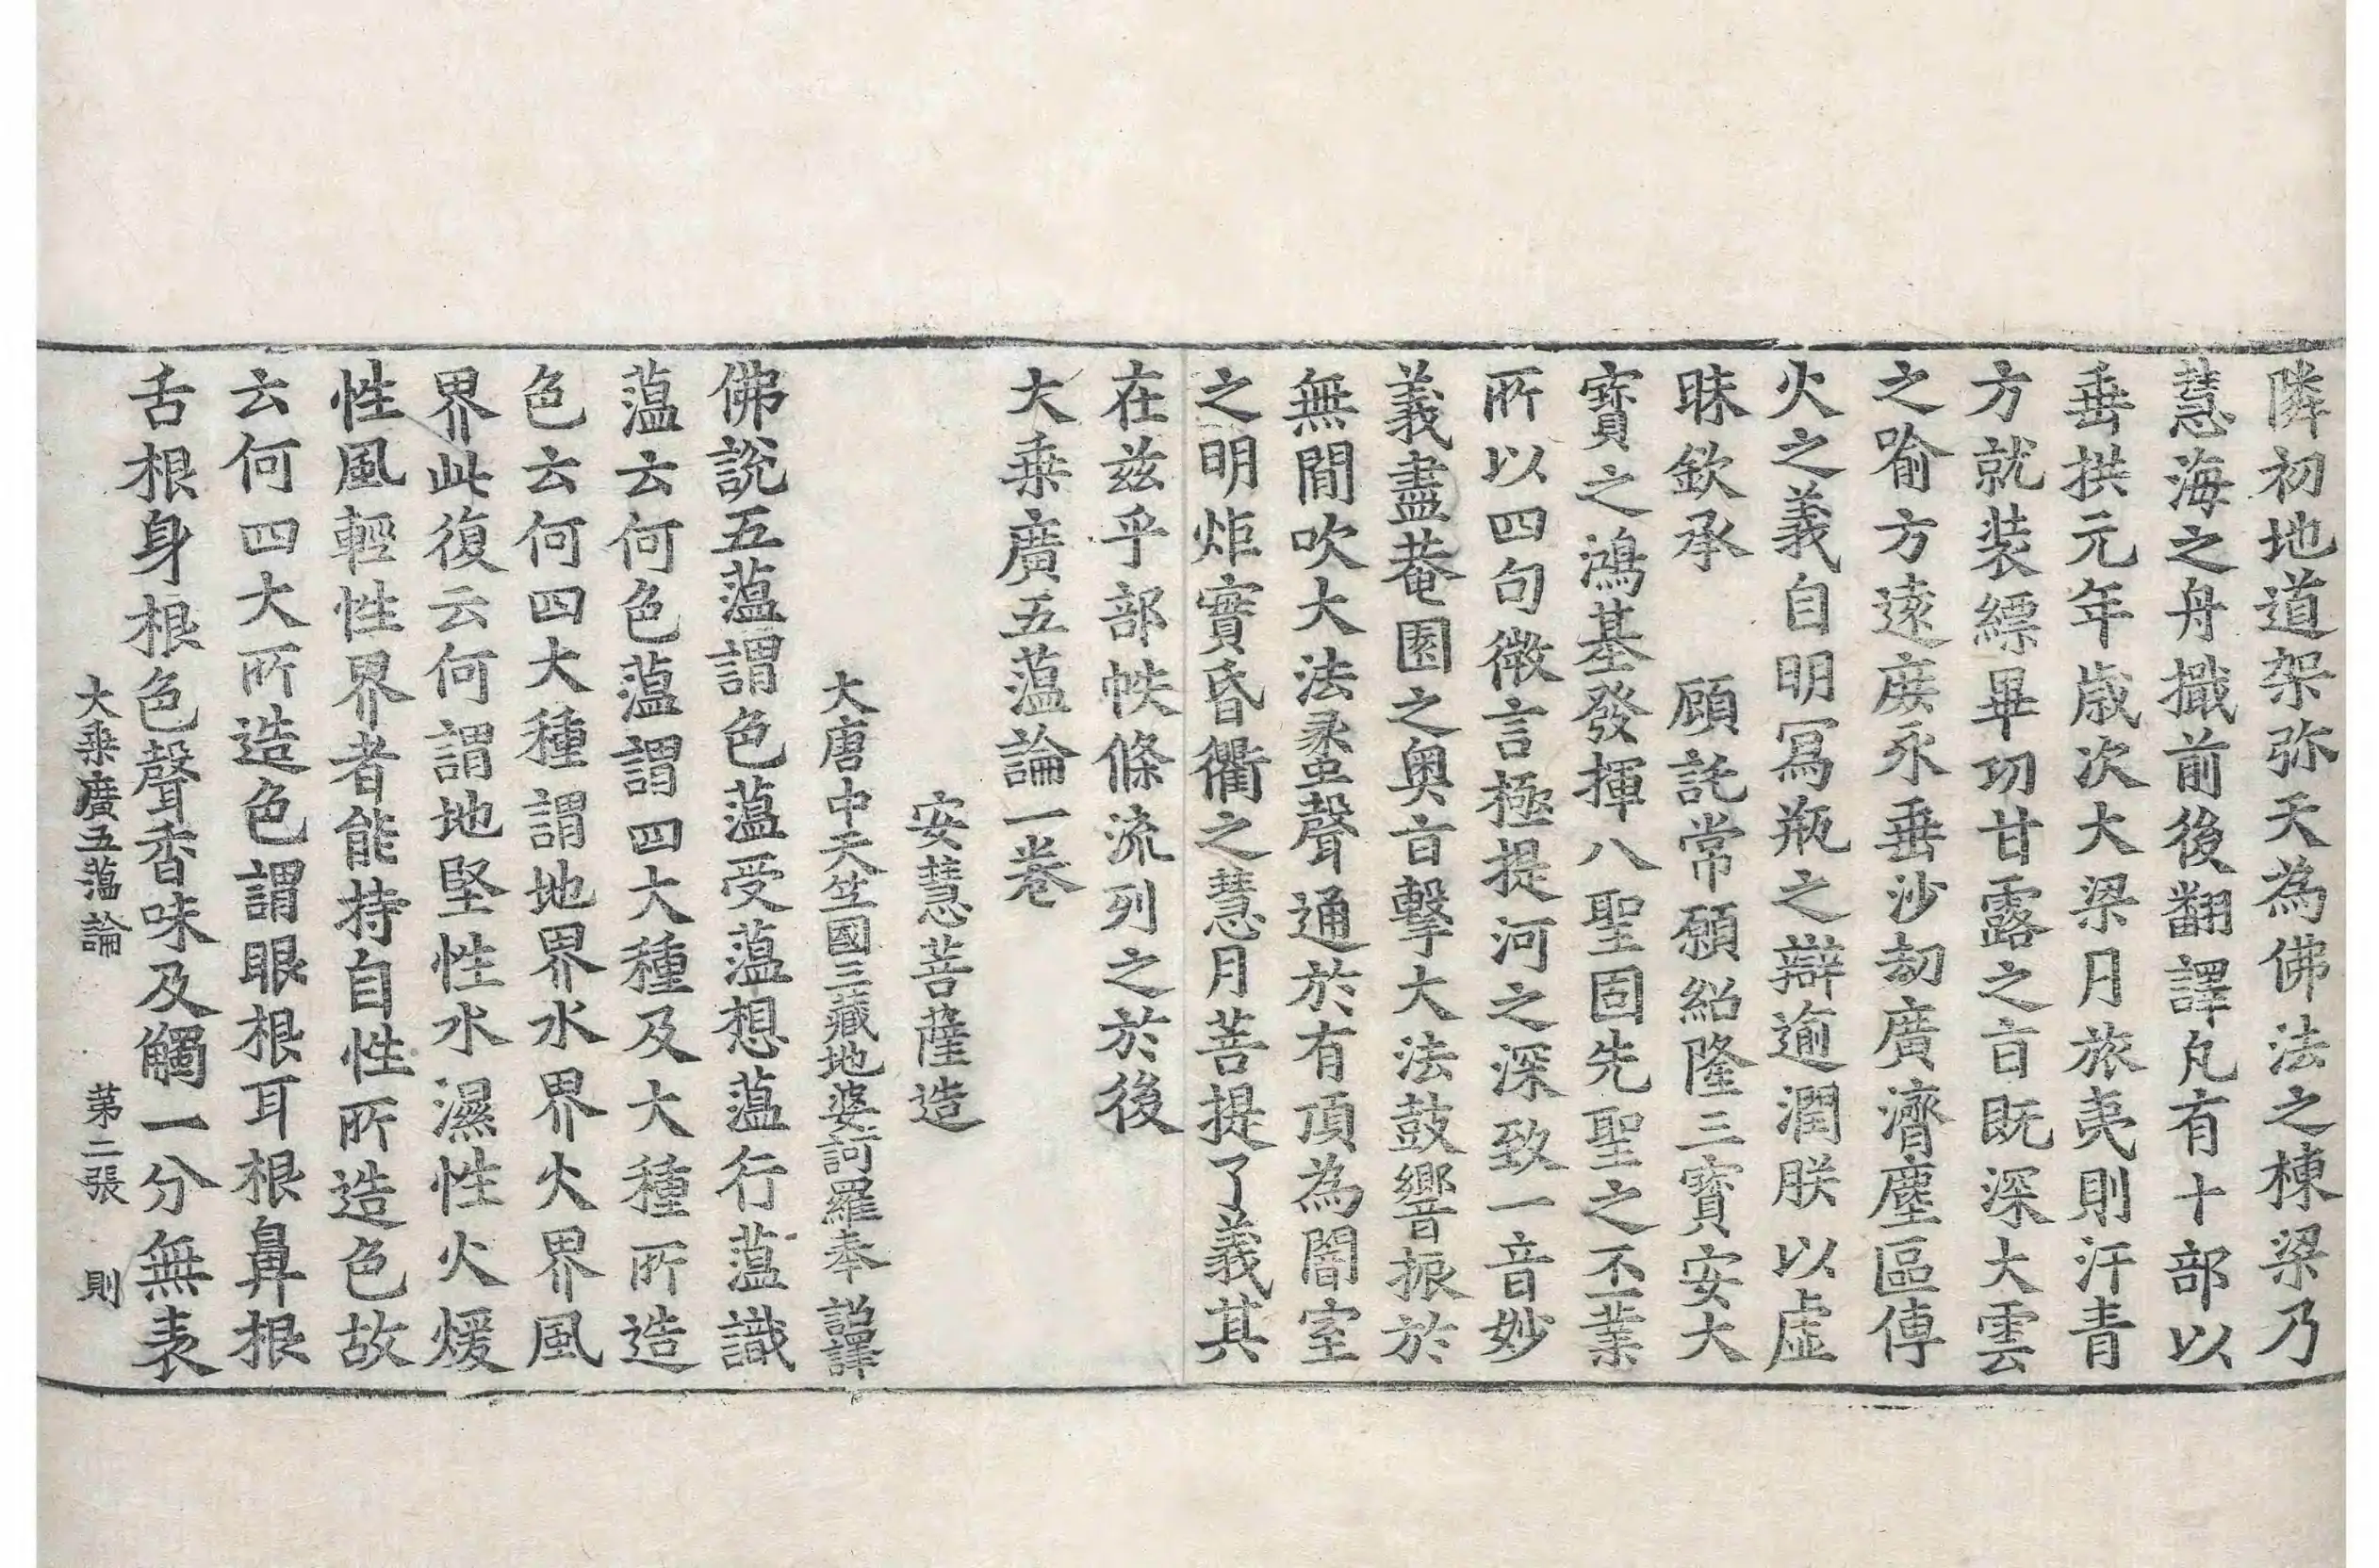 隣初地道架弥天為佛法之棟梁乃
慧海之舟擑前後翻譯凡有十部以
垂拱元年歳次大梁月旅夷則汗青
方就装縹畢功甘露之㫖既深大雲
之喻方遠庻永垂沙劫廣濟塵區傳
火之義自明冩瓶之辯逾潤朕以虛
昧欽承　顧託常願紹隆三寶安大
寶之鴻基發揮八聖固先聖之丕業
所以四句微言極提河之深致一音妙
義盡菴園之奥㫖擊大法鼓響振於
無間吹大法䗍聲通於有頂為闇室
之明炬實昏衢之慧月菩提了義其
在兹乎部帙條流列之於後
大乗廣五藴論一卷
安慧菩薩造
大唐中天竺國三藏地婆訶羅奉　詔譯
佛說五藴謂色藴受藴想藴行藴識
藴云何色藴謂四大種及大種所造
色云何四大種謂地界水界火界風
界此復云何謂地堅性水濕性火煖
性風輕性界者能持自性所造色故
云何四大所造色謂眼根耳根鼻根
舌根身根色聲香味及觸一分無表
大乗廣五藴論　第二張　則